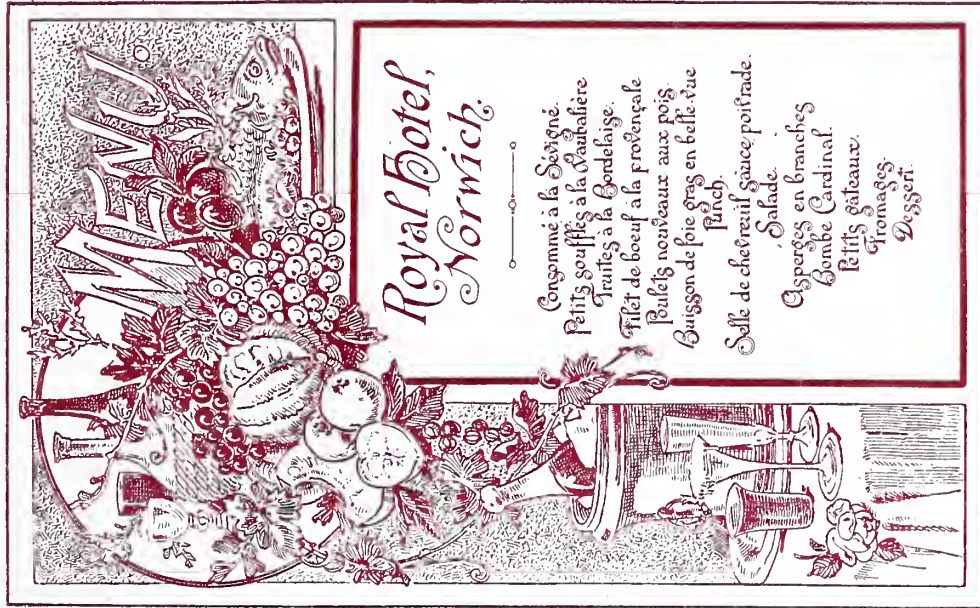 MENU
Royal Hotel,
Norwich.
Consommé à la Sévigné.
Petits soufflés à la Vaubalière
Truites à la Bordelaise.
Filet de boeuf à la provençale
Poulets nouveaux aux pois.
Buisson de foie gras en belle-vue
Punch.
Selle de chevreuil sauce poivrade.
Salade.
Asperges en branches
Bombe Cardinal.
Petits gâteaux.
Fromages.
Dessert.